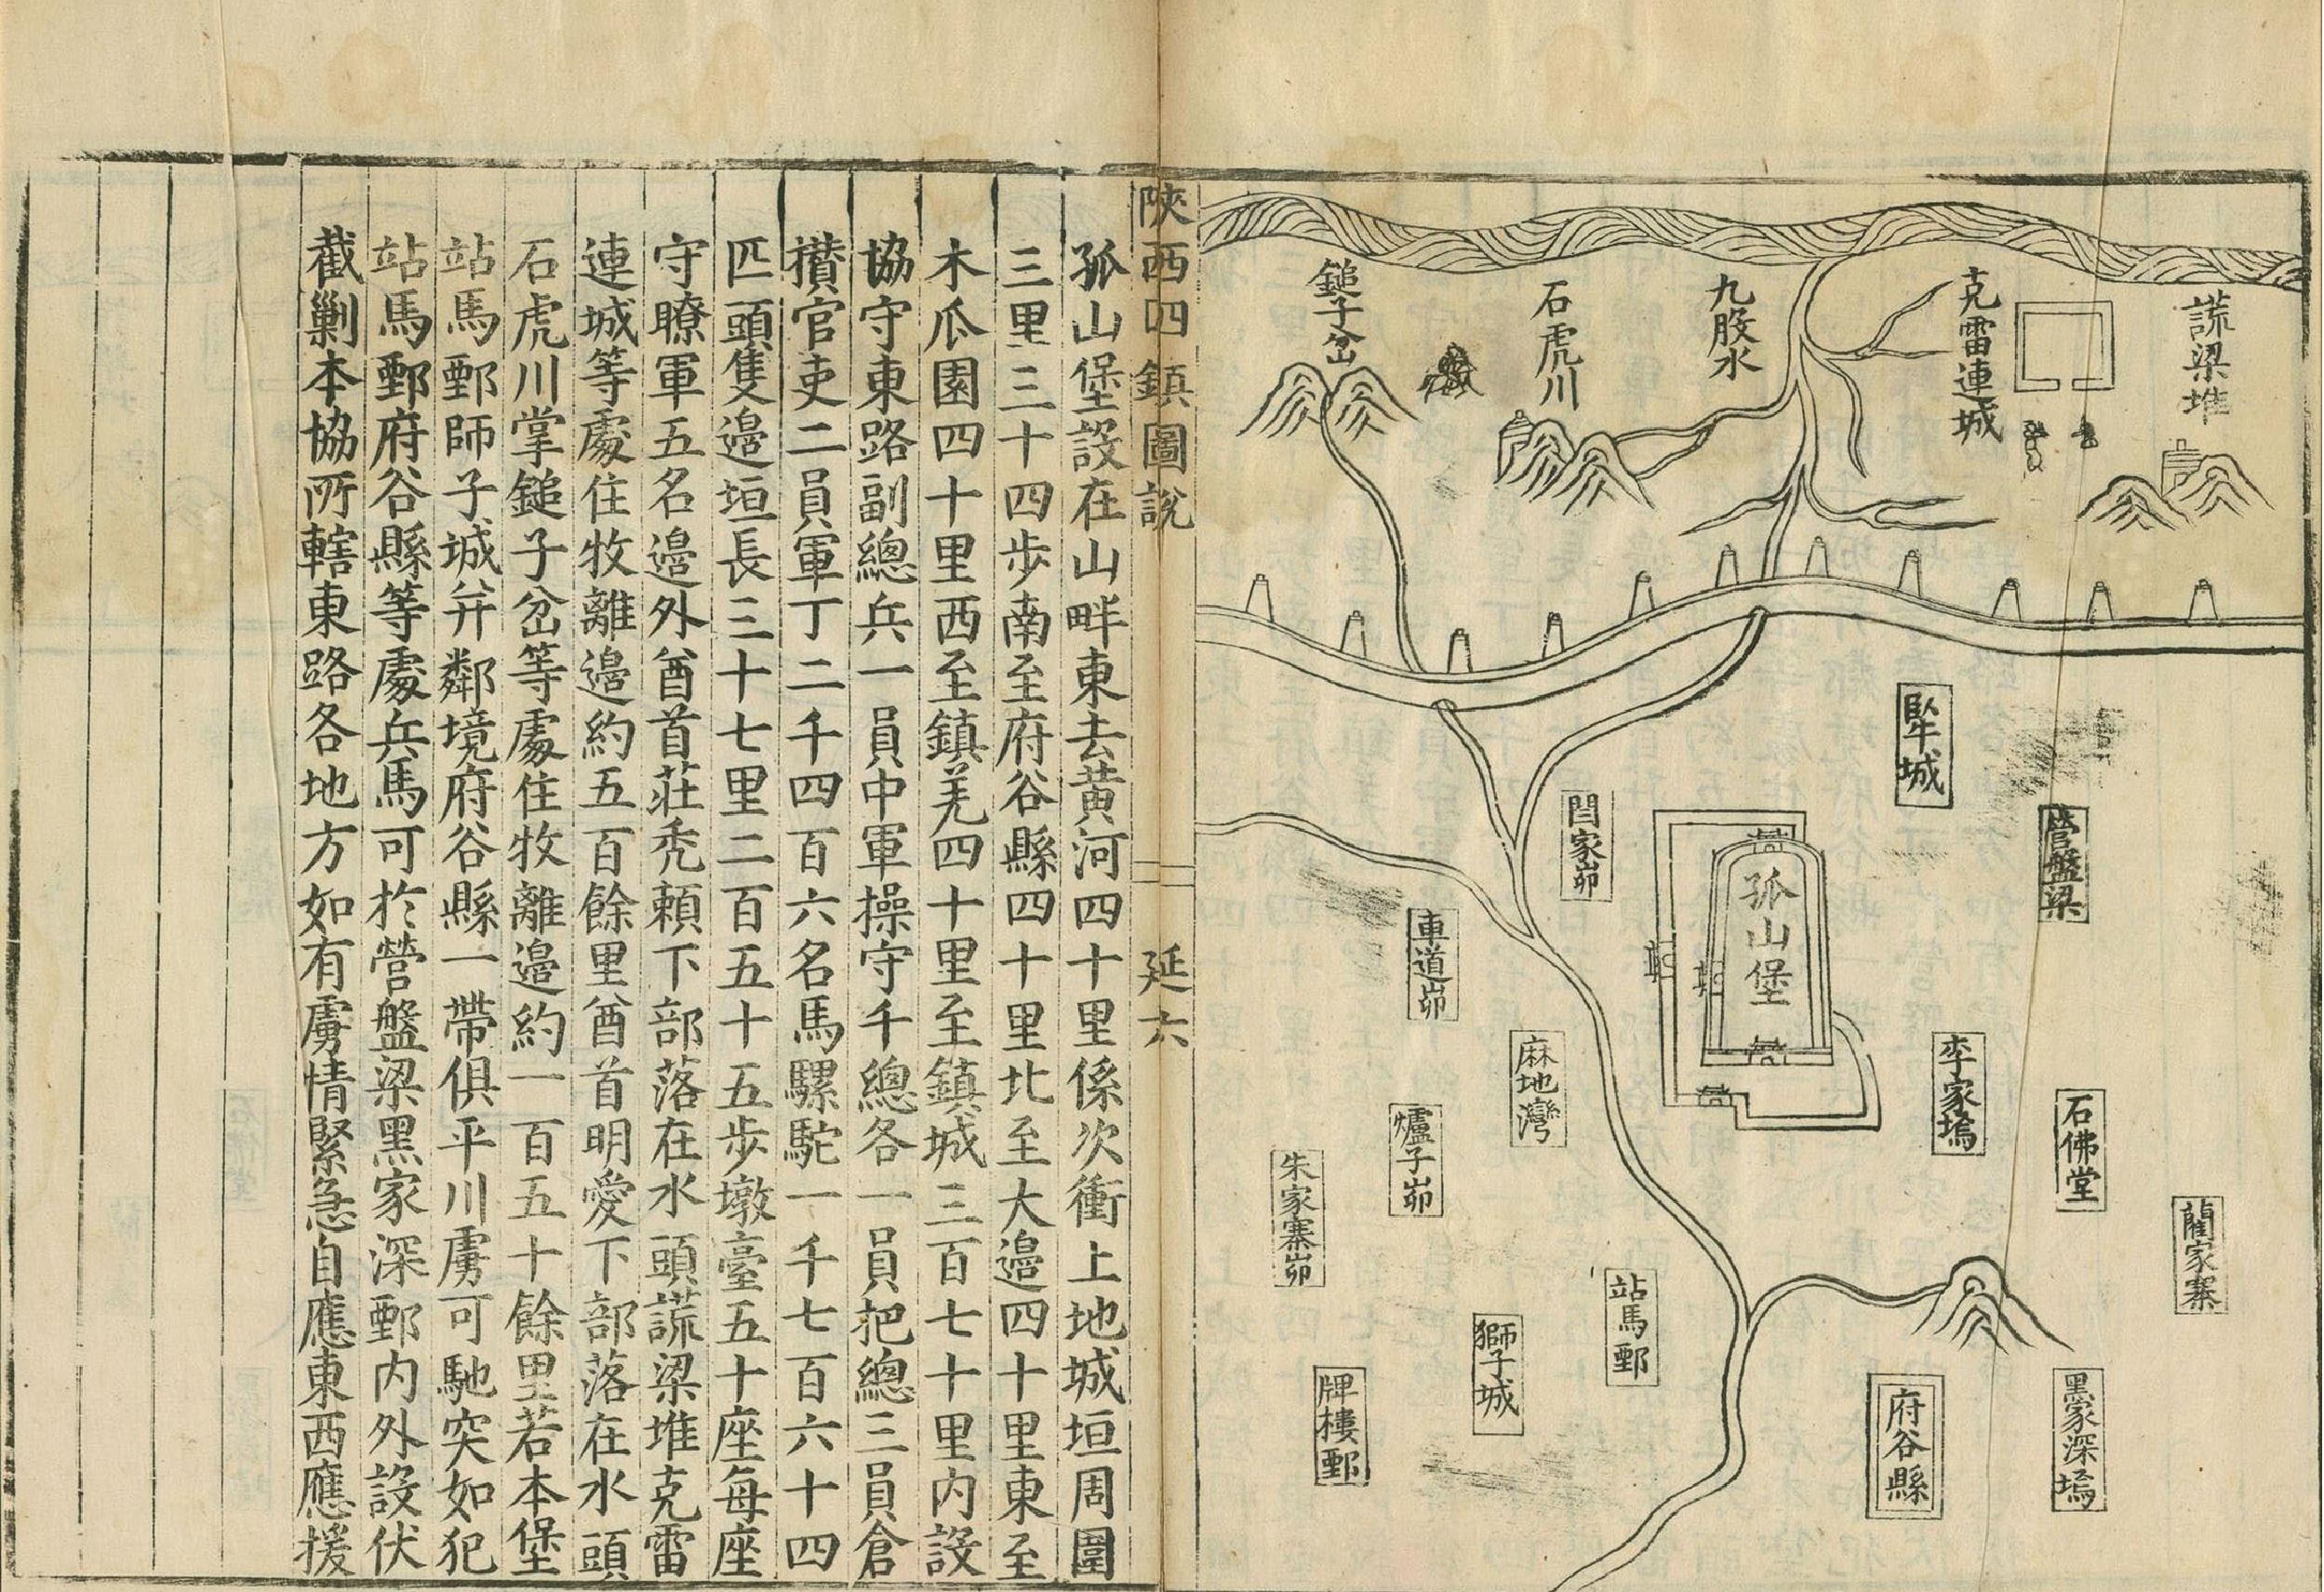 謊梁堆
克雷連城
九股水
石虎川
鎚子岔
營盤梁
閆家峁
孤山堡
車道峁
麻地灣
李家塢
石佛堂
藺家寨
爐子峁
朱家寨峁
站馬鄄
獅子城
牌樓鄄
府谷縣
黑家深塢
陝西四鎮圖說
延六
孤山堡設在山畔東去黃河四十里係次衝上地城垣周圍
三里三十四步南至府谷縣四十里北至大邉四十里東至
木瓜園四十里西至鎮羌四十里至鎮城三百七十里內設
協守東路副總兵一員中軍操守千總各一員把總三員倉
攢官吏二員軍丁二千四百六名馬騾駝一千七百六十四
匹頭隻邉垣長三十七里二百五十五步墩臺五十座每座
守瞭軍五名邉外酋首莊禿賴下部落在水頭謊梁堆克雷
連城等處住牧離邉約五百餘里酋首明愛下部落在水頭
石虎川掌鎚子岔等處住牧離邉約一百五十餘里若本堡
站馬鄄師子城并鄰境府谷縣一帶俱平川虜可馳突如犯
站馬鄄府谷縣等處兵馬可於營盤梁黑家深鄄內外設伏
截剿本協所轄東路各地方如有虜情緊急自應東西應援